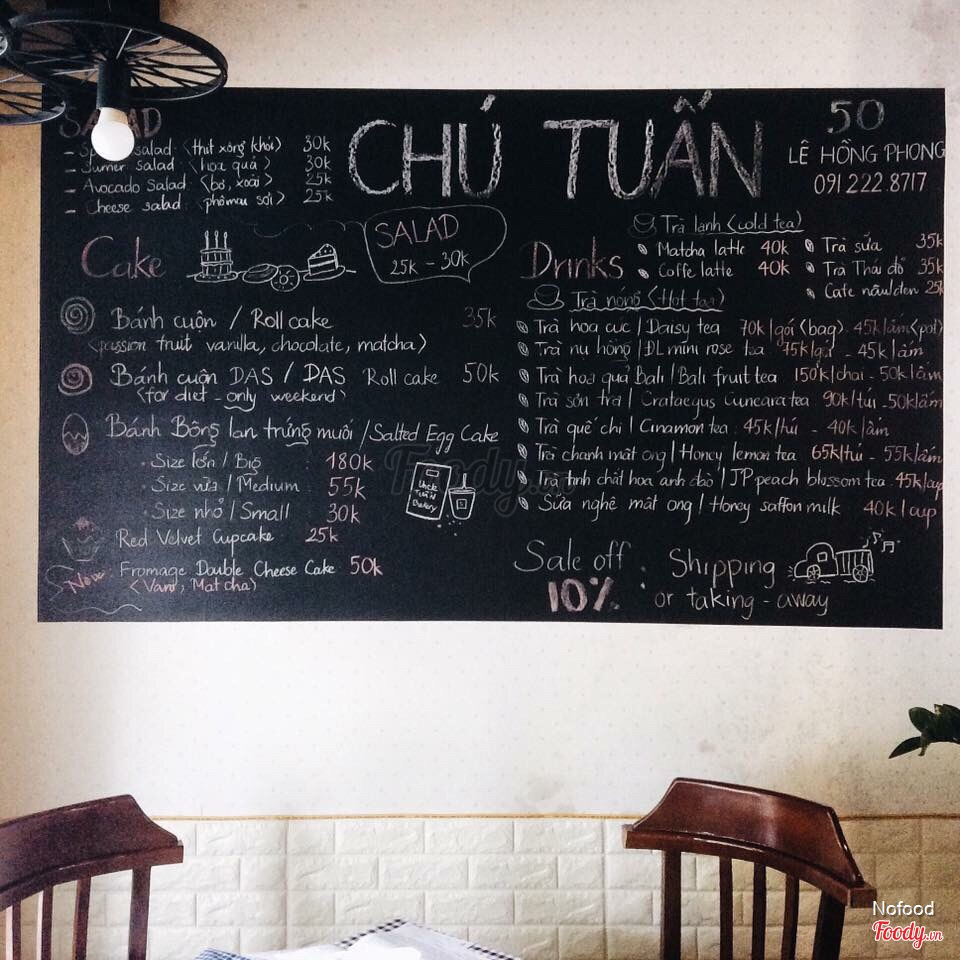 SALAD
salad <thịt xông khói> 30k
- Sumer Salad <hoa quả> 30k
- Avocado Salad <bơ, xoài> 25k
- Cheese salad <phô mai sợi> 25k
CHÚ TUẤN
50
LÊ HỒNG PHONG
091 222.8717
SALAD
25k - 30k
Cake
Bánh cuộn / Roll cake 35k
<passion fruit vanilla, chocolate, matcha>
Bánh cuộn DAS / DAS Roll cake 50k
<for diet - only weekend>
Bánh Bông lan trứng muối / Salted Egg Cake
. Size lớn / Big : 180k
. Size vừa / Medium 55k
. Size nhỏ / Small 30k
Red Velvet Cupcake 25k
New
Fromage Double Cheese Cake 50k
<Vani, Matcha>
Uncle
Tuấn
Bakery
Drinks
Trà lạnh <cold tea>
Matcha latte 40k
Coffe latte 40k
Trà sữa 35k
Trà Thái đỏ 35k
Cafe nâu/đen 25k
Trà nóng <Hot tea>
Trà hoa cúc / Daisy tea 70k/gói <bag> 45k/ấm <pot>
Trà nụ hồng / ĐL mini rose tea 75k/gói - 45k/ấm
Trà hoa quả Bali / Bali fruit tea 150k/chai - 50k/ấm
Trà sơn tra / Crataegus Cunearatea 90k/túi - 50k/ấm
Trà quế chi / Cinamon tea : 45k/túi - 40k/ấm
Trà chanh mật ong / Honey lemon tea 65k/túi - 55k/ấm
Trà tinh chất hoa anh đào / JP peach blossom tea 45k/cup
Sữa nghệ mật ong / Honey saffon milk 40k/cup
Sale off
10%
: Shipping
or taking - away
Foody.vn
Nofood
Foody.vn